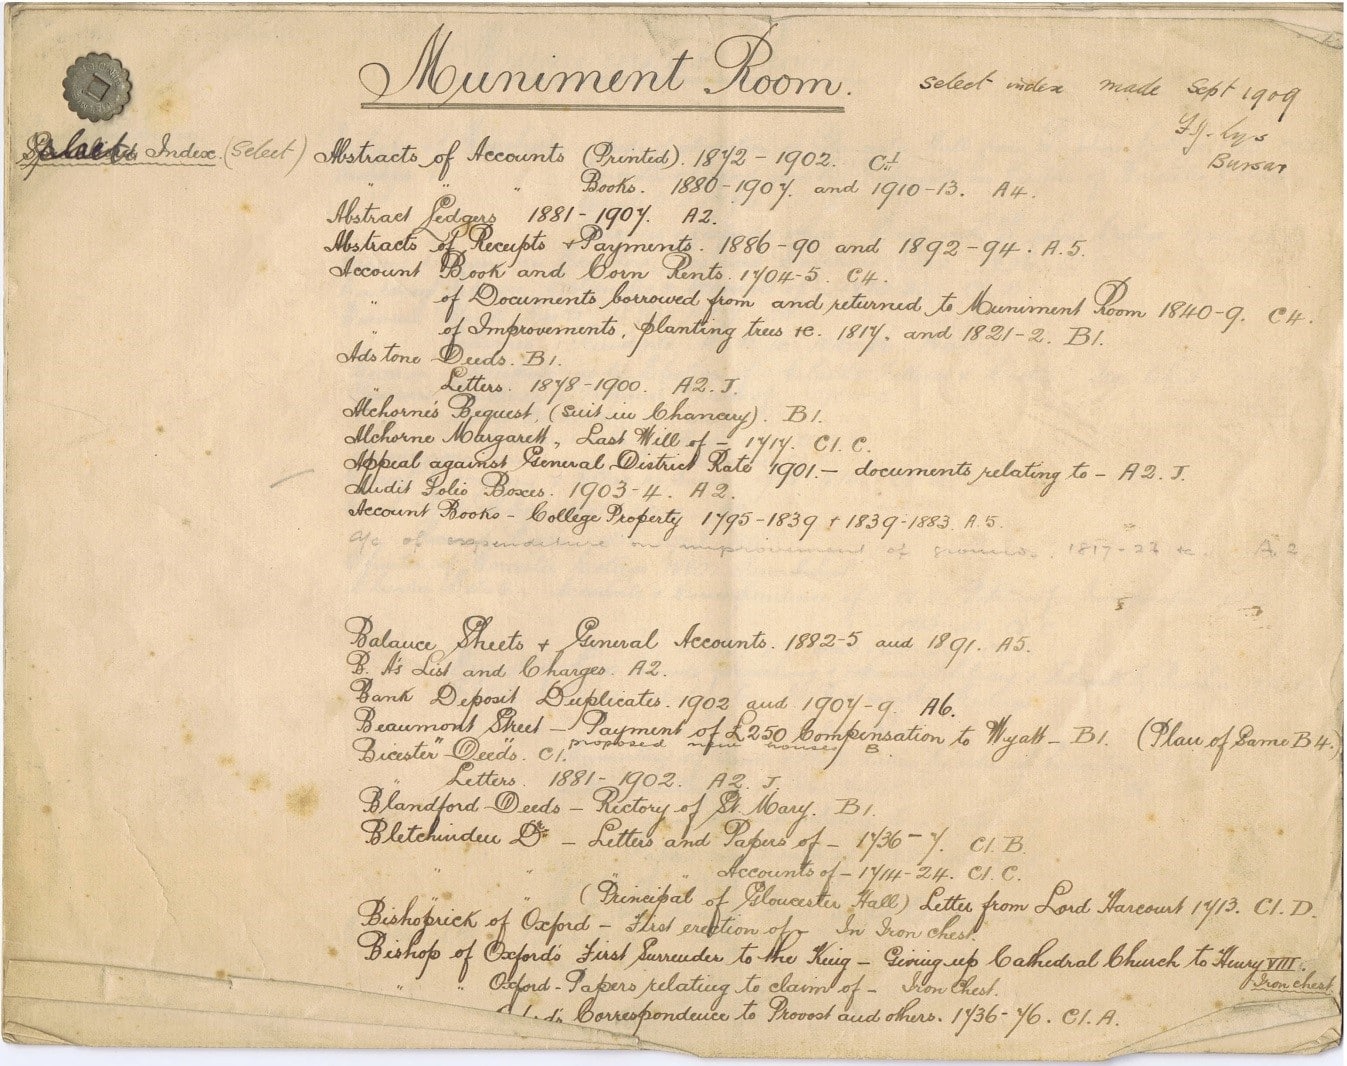 Muniment Room.
Select index made Sept 1909
F.J. Lys
Bursar
Select Index. (Select)
Abstracts of Accounts (Printed). 1872-1902. C1
" " " Books. 1880-1907. and 1910-13. A4.
Abstract Ledgers 1881-1907. A2.
Abstracts of Receipts + Payments. 1886-90 and 1892-94. A.5.
Account Book and Corn Rents. 1704-5. C4.
" of Documents borrowed from and returned to Muniment Room 1840-9. C4.
" of Improvements, planting trees &c. 1817. and 1821-2. B1.
Adstone Deeds. B1.
" Letters. 1878-1900. A2. J.
Alchorne's Bequest, (Suit in Chancery). B1.
Alchorne Margarett, Last Will of - 1717. C1. C.
Appeal against General District Rate 1901. - documents relating to - A2. J.
Audit Folio Boxes. 1903-4. A2.
Account Books - College Property 1795-1839 + 1839-1883. A.5.
a/c of expenditure on improvement of grounds. 1817-23 &c. A.2.
Balance Sheets + General Accounts. 1882-5 and 1891. A5.
B. A's List and Charges. A2.
Bank Deposit Duplicates. 1902 and 1907-9. A6.
Beaumont Street - Payment of £250 Compensation to Wyatt - B1. (Plan of Same B4.)
" " proposed new houses B
Bicester Deeds. C1.
" Letters. 1881-1902. A2. J
Blandford Deeds - Rectory of St Mary. B1.
Bletchinden Dr - Letters and Papers of - 1736-7. C1. B.
" " " Accounts of - 1714-24. C1. C.
" " (Principal of Gloucester Hall) Letter from Lord Harcourt 1713. C1. D.
Bishoprick of Oxford - First erection of - In Iron chest.
Bishop of Oxford's First Surrender to the King - Giving up Cathedral Church to Henry VIII.
Iron chest.
" " Oxford - Papers relating to claim of - Iron Chest.
Correspondence to Provost and others. 1736-76. C1. A.